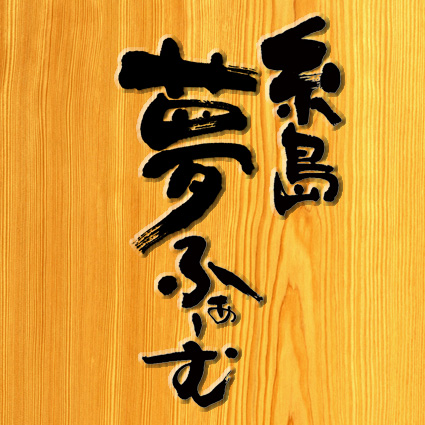 糸島
夢ふぁーむ